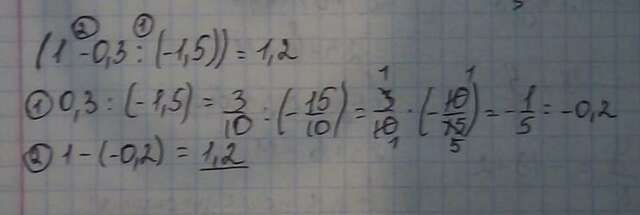 (1 - 0,3 : (-1,5)) = 1,2
① 0,3 : (-1,5) = 3/10 : (-15/10) = 3/10 · (-10/15) = -1/5 = -0,2
② 1 - (-0,2) = 1,2